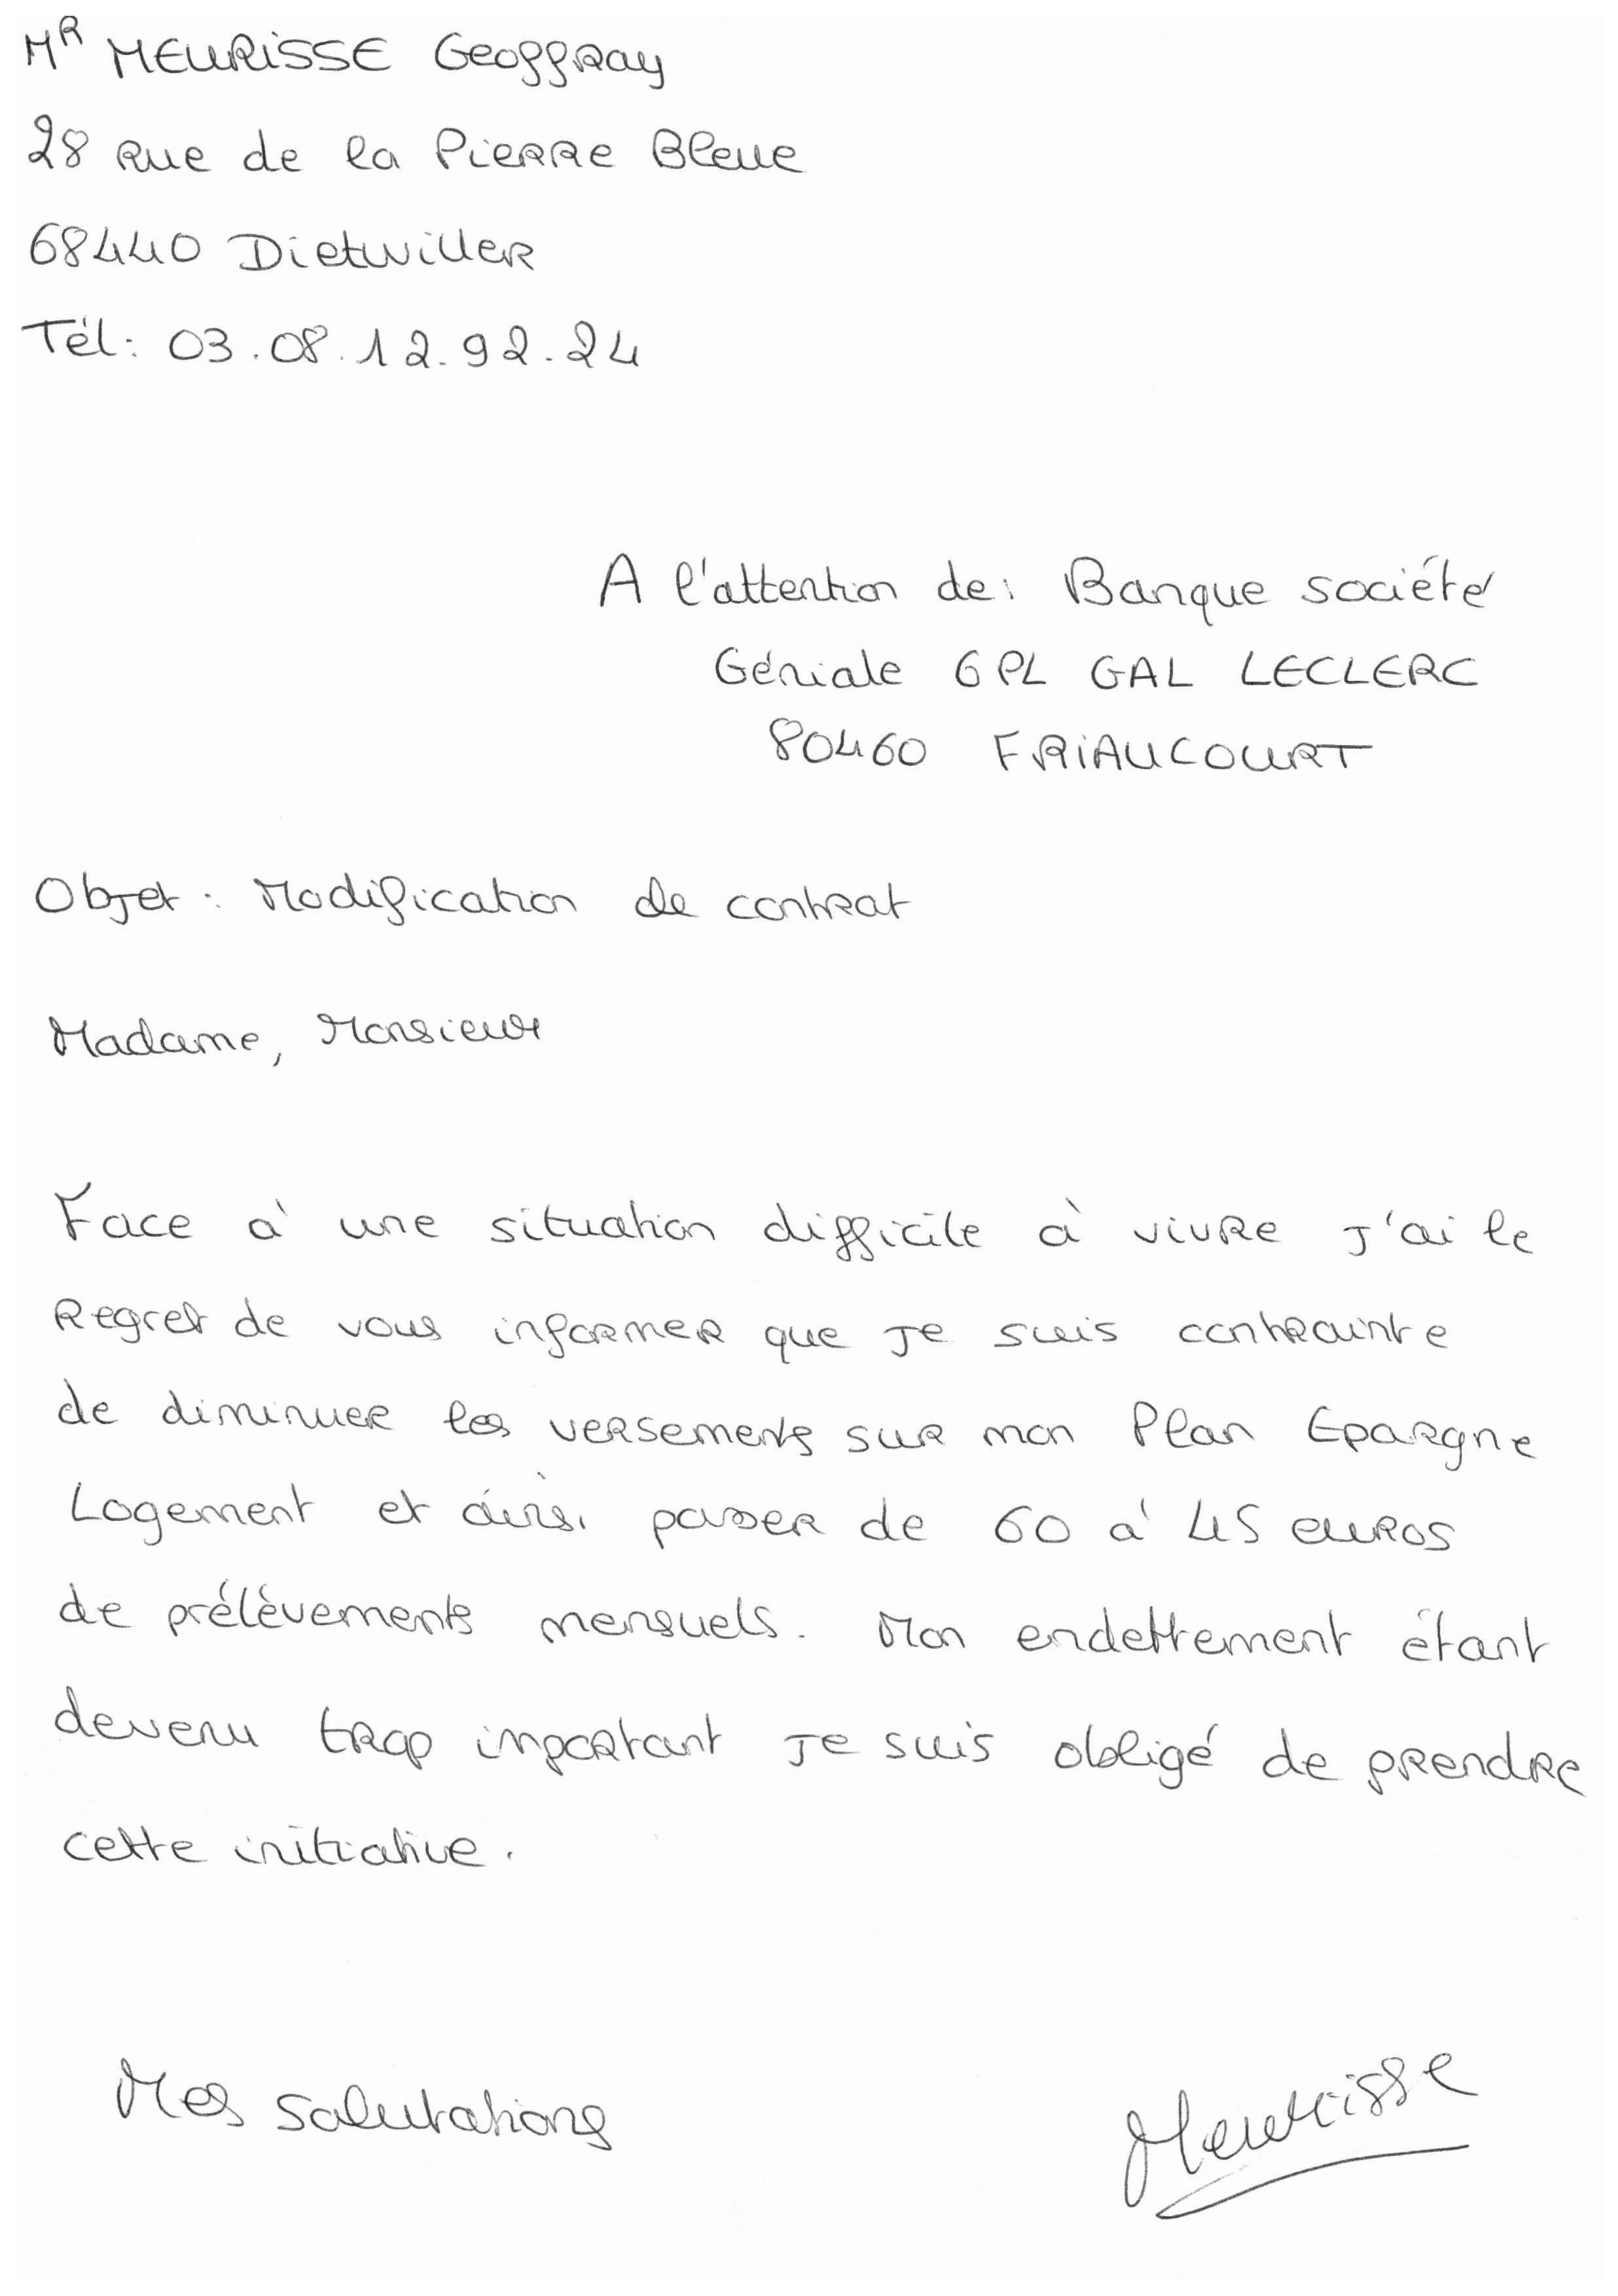 MR MEURISSE Geoffray
28 rue de la Pierre Bleue
68440 Dietwiller
Tél: 03.08.12.92.24
A l'attention de: Banque société
Géniale 6 PL GAL LECLERC
80460 FRIAUCOURT
Objet : Modification de contrat
Madame, Monsieur
Face à une situation difficile à vivre j'ai le
regret de vous informer que je suis contrainte
de diminuer les versements sur mon Plan Epargne
Logement et ainsi passer de 60 à 45 euros
de prélèvements mensuels. Mon endettement étant
devenu trop important je suis obligé de prendre
cette initiative.
Mes salutations
Meurisse